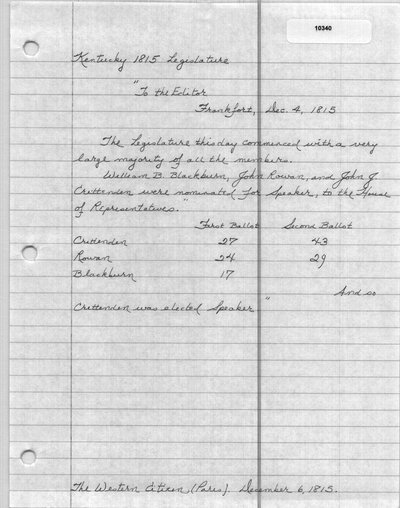 10340
Kentucky 1815 Legislature
"To the Editor
Frankfort, Dec. 4, 1815
The Legislature this day commenced with a very
large majority of all the members.
William B. Blackburn, John Rowan, and John J
Crittenden were nominated for Speaker, to the House
of Representatives."
First Ballot Second Ballot
Crittenden 27 43
Rowan 24 29
Blackburn 17
And so
Crittenden was elected Speaker "
The Western Citizen, (Paris). December 6, 1815.